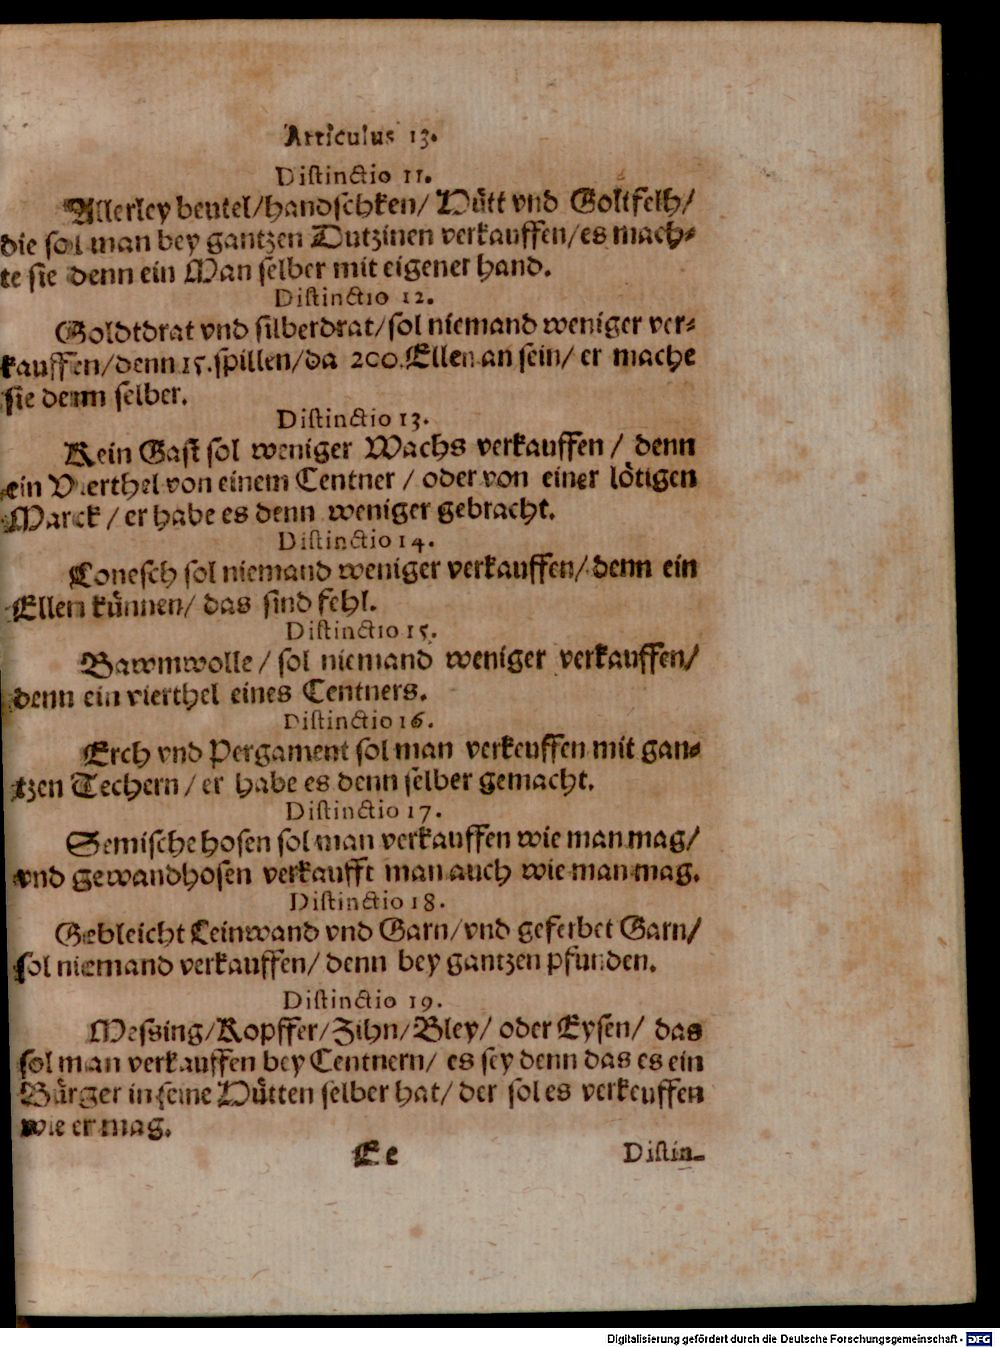 Articulus 13.
Distinctio 11.
Allerley beutel/handschken/ Hütt vnd Goltfelh/
die sol man bey gantzen Dutzinen verkauffen/es mach-
te sie denn ein Man selber mit eigener hand.
Distinctio 12.
Goldtdrat vnd silberdrat/sol niemand weniger ver-
kauffen/denn 15.spillen/da 200.Ellen an sein/ er mache
sie denn selber.
Distinctio 13.
Kein Gast sol weniger Wachs verkauffen / denn
ein Vierthel von einem Centner / oder von einer lötigen
Marck / er habe es denn weniger gebracht.
Distinctio 14.
Conesch sol niemand weniger verkauffen/ denn ein
Ellen künnen/ das sind fehl.
Distinctio 15.
Bawmwolle / sol niemand weniger verkauffen/
denn ein vierthel eines Centners.
Distinctio 16.
Erch vnd Pergament sol man verkeuffen mit gan-
tzen Techern / er habe es denn selber gemacht.
Distinctio 17.
Semische hosen sol man verkauffen wie man mag/
vnd gewandhosen verkaufft man auch wie man mag.
Distinctio 18.
Gebleicht Leinwand vnd Garn/vnd geferbet Garn/
sol niemand verkauffen/ denn bey gantzen pfunden.
Distinctio 19.
Messing/Kopffer/Zihn/Bley/ oder Eysen/ das
sol man verkauffen bey Centnern/ es sey denn das es ein
Bürger in seine Hütten selber hat/ der sol es verkeuffen
wie er mag.
Ee Distin-
Digitalisierung gefördert durch die Deutsche Forschungsgemeinschaft - DFG